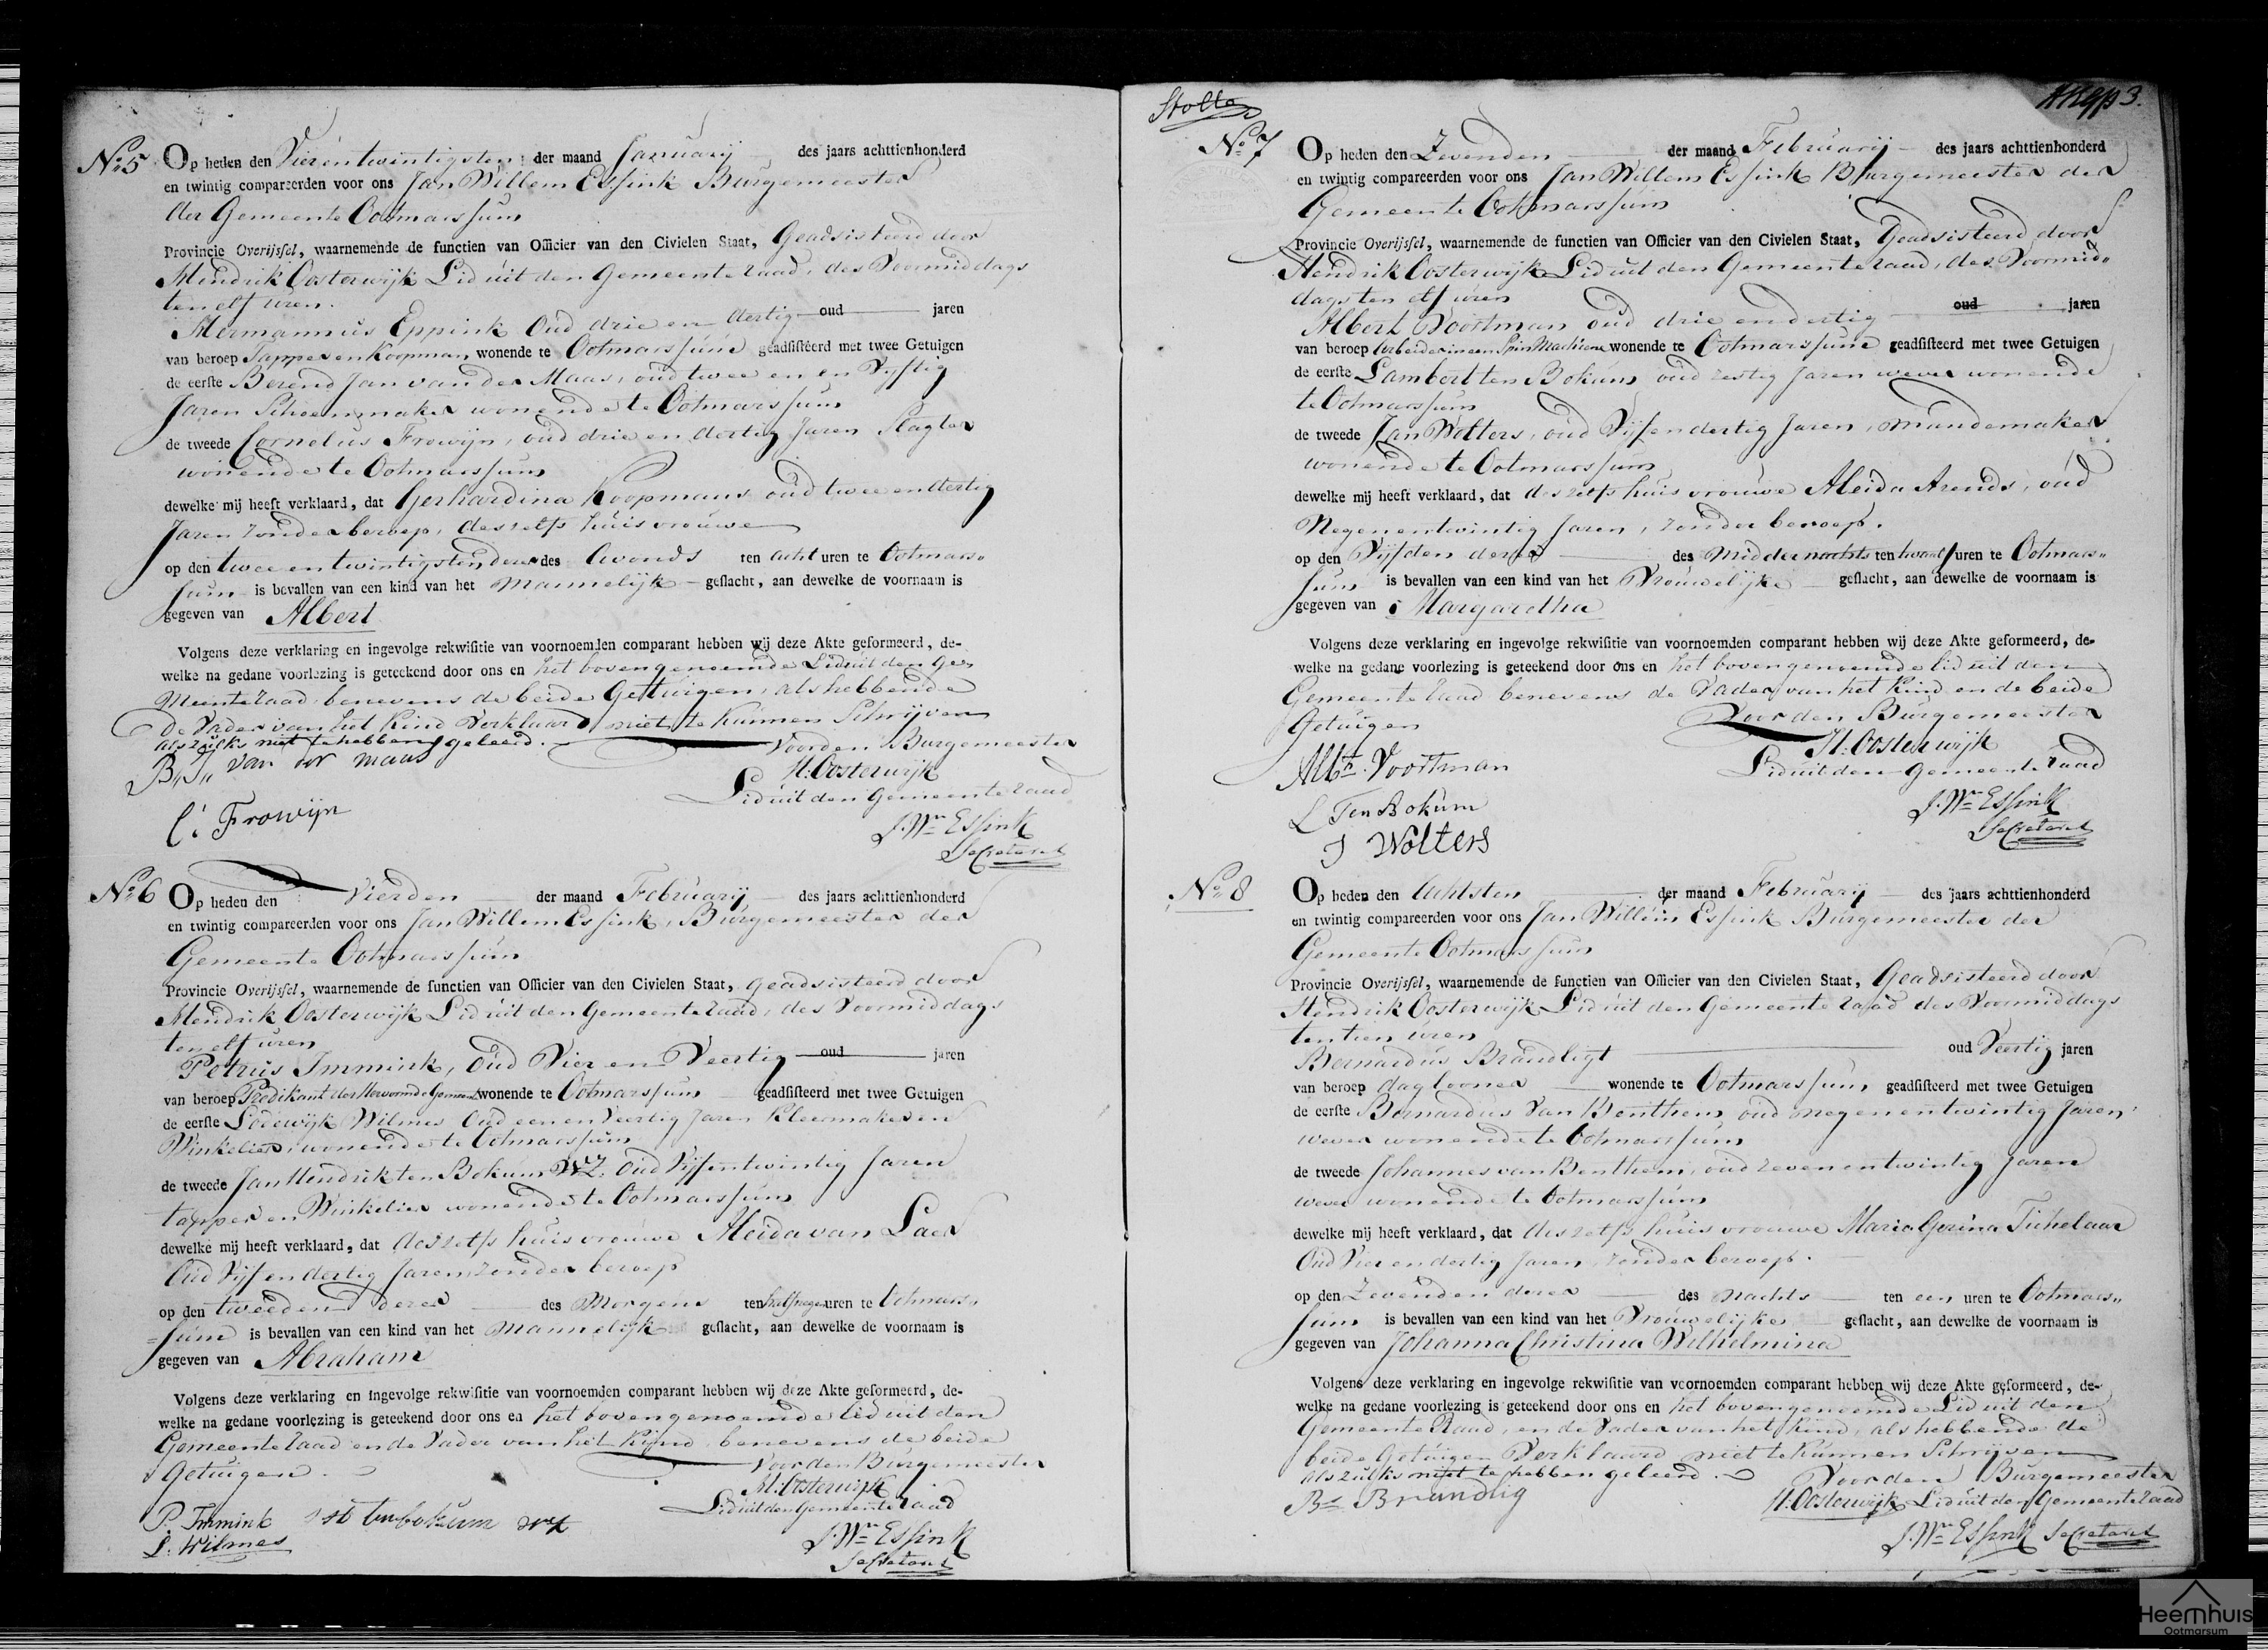 No 5 Op heden den Vierentwintigsten der maand Januarij des jaars achttienhonderd
en twintig compareerden voor ons Jan Willem Essink Burgemeester
der Gemeente Ootmarssum
Provincie Overijssel, waarnemende de functien van Officier van den Civielen Staat, Geadsisteerd door
Hendrik Oosterwijk Lid uit den Gemeente raad, des Voormiddags
ten elf uren.
Hermannus Eppink Oud drie en dertig oud jaren
van beroep Tapper en Koopman wonende te Ootmarssum geadsisteerd met twee Getuigen
de eerste Berend Jan van der Maas, oud twee en en Vyftig
Jaren Schoenmaker wonende te Ootmarssum
de tweede Cornelius Frowijn, oud drie en dertig Jaren Slagter
wonende te Ootmarssum
dewelke mij heeft verklaard, dat Gerhardina Koopmans oud twee en dertig
Jaren zonder beroep, deszelfs huisvrouwe
op den twee en twintigsten dezer des Avonds ten acht uren te Ootmars„
sum is bevallen van een kind van het Mannelijk geslacht, aan dewelke de voornaam is
gegeven van Albert
Volgens deze verklaring en ingevolge rekwisitie van voornoemden comparant hebben wij deze Akte geformeerd, de-
welke na gedane voorlezing is geteekend door ons en het bovengenoemde Lid uit den Ge„
Meente raad benevens de beide Getuigen, als hebbende
De Vader van het Kind Verklaard niet te Kunnen Schrijven
als zulks niet te hebben geleerd.
Voor den Burgemeester
B. J. van der maas
H. Oosterwijk
Lid uit den Gemeente raad
C. Frowijn
J. Wm Essink
Secretaris
No 6 Op heden den Vierden der maand Februarij des jaars achttienhonderd
en twintig compareerden voor ons Jan Willem Essink, Burgemeester der
Gemeente Ootmarssum
Provincie Overijssel, waarnemende de functien van Officier van den Civielen Staat, geadsisteerd door
Hendrik Oosterwijk Lid uit den Gemeente raad, des Voormiddags
ten elf uren
Petrus Immink, Oud Vier en Veertig oud jaren
van beroep Predikant der Hervormde Gemeent wonende te Ootmarssum geadsisteerd met twee Getuigen
de eerste Lodewijk Wilmes Oud een en Veertig Jaren Kleermaker en
Winkelier, wonende te Ootmarssum
de tweede Jan Hendrik ten Bokum WZ. Oud Vijfentwintig Jaren
tapper en Winkelier wonende te Ootmarssum
dewelke mij heeft verklaard, dat deszelfs huisvrouwe Aleida van Laer
Oud Vijf en dertig Jaren, zonder beroep
op den tweeden dezer des Morgens ten half negen uren te Ootmars„
sum is bevallen van een kind van het Mannelijk geslacht, aan dewelke de voornaam is
gegeven van Abraham
Volgens deze verklaring en ingevolge rekwisitie van voornoemden comparant hebben wij deze Akte geformeerd, de-
welke na gedane voorlezing is geteekend door ons en het bovengenoemde lid uit den
Gemeente raad en de Vader van het Kind benevens de beide
Getuigen.
Voor den Burgemeester
H. Oosterwijk
Lid uit den Gemeente raad
P. Immink
ten bokum
L. Wilmes
J. Wm Essink
Secretaris
Stolte
3.
No 7 Op heden den Zevenden der maand Februarij des jaars achttienhonderd
en twintig compareerden voor ons Jan Willem Essink Burgemeester der
Gemeente Ootmarssum
Provincie Overijssel, waarnemende de functien van Officier van den Civielen Staat, Geadsisteerd door
Hendrik Oosterwijk Lid uit den Gemeente raad, des Voormid„
dags ten elf uren
Albert Voortman oud drie en dertig oud jaren
van beroep Arbeider in een Spin Machiene wonende te Ootmarssum geadsisteerd met twee Getuigen
de eerste Lambert ten Bokum oud zestig Jaren wever wonende
te Ootmarssum
de tweede Jan Wolters, oud Vijfendertig Jaren, mandemaker
wonende te Ootmarssum
dewelke mij heeft verklaard, dat deszelfs huisvrouwe Aleida Arends, oud
Negenentwintig Jaren, zonder beroep.
op den Vijfden dezer des Middernachts ten twaalf uren te Ootmars„
sum is bevallen van een kind van het Vrouwelijke geslacht, aan dewelke de voornaam is
gegeven van Margaretha
Volgens deze verklaring en ingevolge rekwisitie van voornoemden comparant hebben wij deze Akte geformeerd, de-
welke na gedane voorlezing is geteekend door ons en het bovengenoemde lid uit den
Gemeente raad benevens de Vader van het Kind en de beide
Getuigen
Voor den Burgemeester
H. Oosterwijk
Lid uit den Gemeente raad
Albt. Voortman
L Ten Bokum
J Wolters
J. Wm Essink
Secretaris
No 8 Op heden den Achtsten der maand Februarij des jaars achttienhonderd
en twintig compareerden voor ons Jan Willem Essink Burgemeester der
Gemeente Ootmarssum
Provincie Overijssel, waarnemende de functien van Officier van den Civielen Staat, Geadsisteerd door
Hendrik Oosterwijk Lid uit den Gemeente raad des Voormiddags
ten tien uren
Bernardus Brandligt oud Veertig jaren
van beroep dagloner wonende te Ootmarssum geadsisteerd met twee Getuigen
de eerste Bernardus Van Benthem, oud negenentwintig Jaren
wever wonende te Ootmarssum
de tweede Johannes van Benthem, oud zevenentwintig Jaren
wever wonende te Ootmarssum
dewelke mij heeft verklaard, dat deszelfs huisvrouwe Maria Gesina Tichelaar
Oud Vier en dertig Jaren, zonder beroep.
op den Zevenden dezer des Nachts ten een uren te Ootmars„
sum is bevallen van een kind van het Vrouwelijke geslacht, aan dewelke de voornaam is
gegeven van Johanna Christina Wilhelmina
Volgens deze verklaring en ingevolge rekwisitie van voornoemden comparant hebben wij deze Akte geformeerd, de-
welke na gedane voorlezing is geteekend door ons en het bovengenoemde Lid uit den
Gemeente Raad, en de Vader van het Kind, als hebbende de
beide Getuigen Verklaard niet te Kunnen Schrijven
als zulks niet te hebben geleerd.
Voor den Burgemeester
Bs Brandlig
H. Oosterwijk Lid uit den Gemeente raad
J. Wm Essink Secretaris
Heemhuis
Ootmarsum